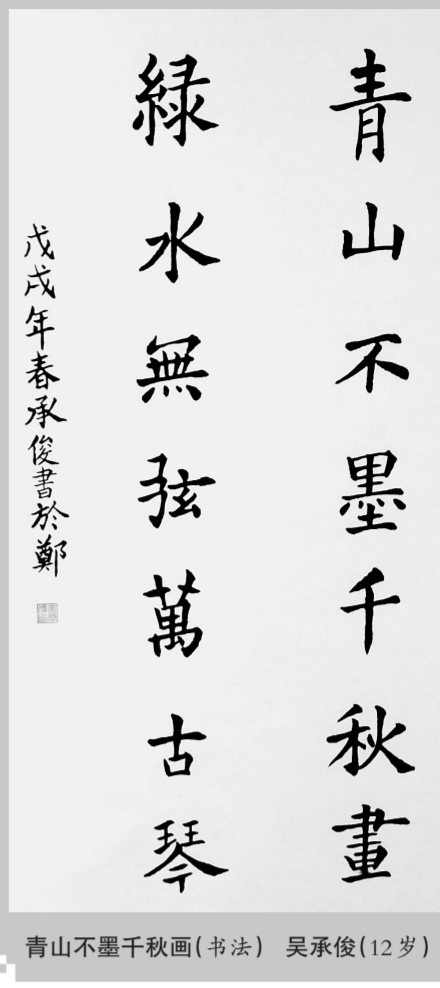 青山不墨千秋畫
緑水無弦萬古琴
戊戌年春承俊書於鄭
青山不墨千秋画(书法) 吴承俊(12岁)